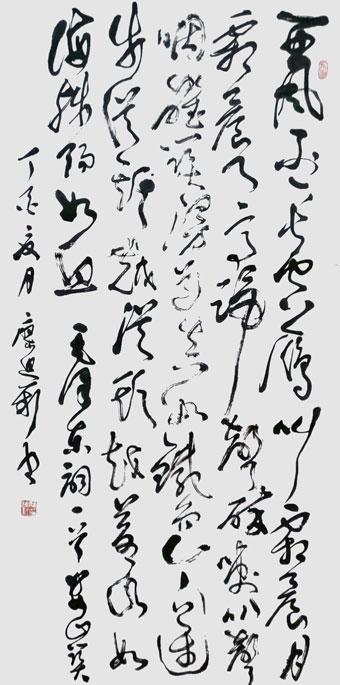 西风烈长空雁叫霜晨月
霜晨月马蹄声碎喇叭声
咽雄关漫道真如铁而今迈
步从头越从头越苍山如
海残阳如血 毛泽东词一首娄山关
丁亥夏月